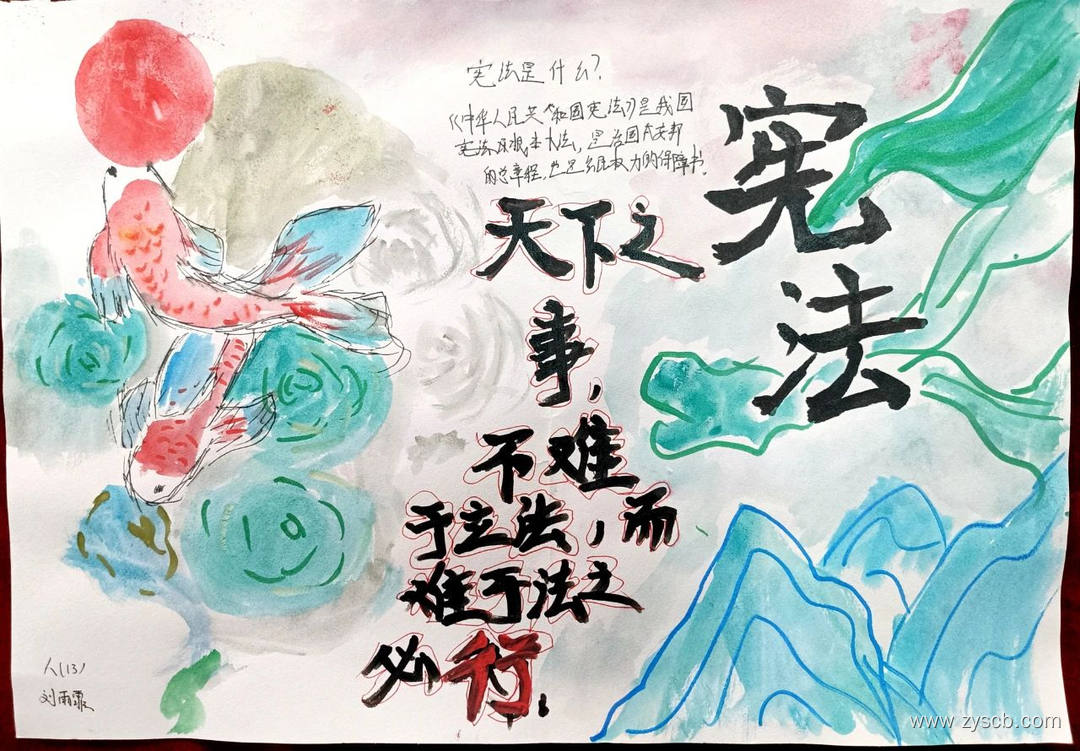 宪法是什么?
《中华人民共和国宪法》是我国
宪法是根本大法,是治国安邦
的总章程,也是人民权力的保障书。
宪
法
天下之
事,
不难
于立法,而
难于法之
必行。
八(13)
刘雨霏
www.zyscb.com